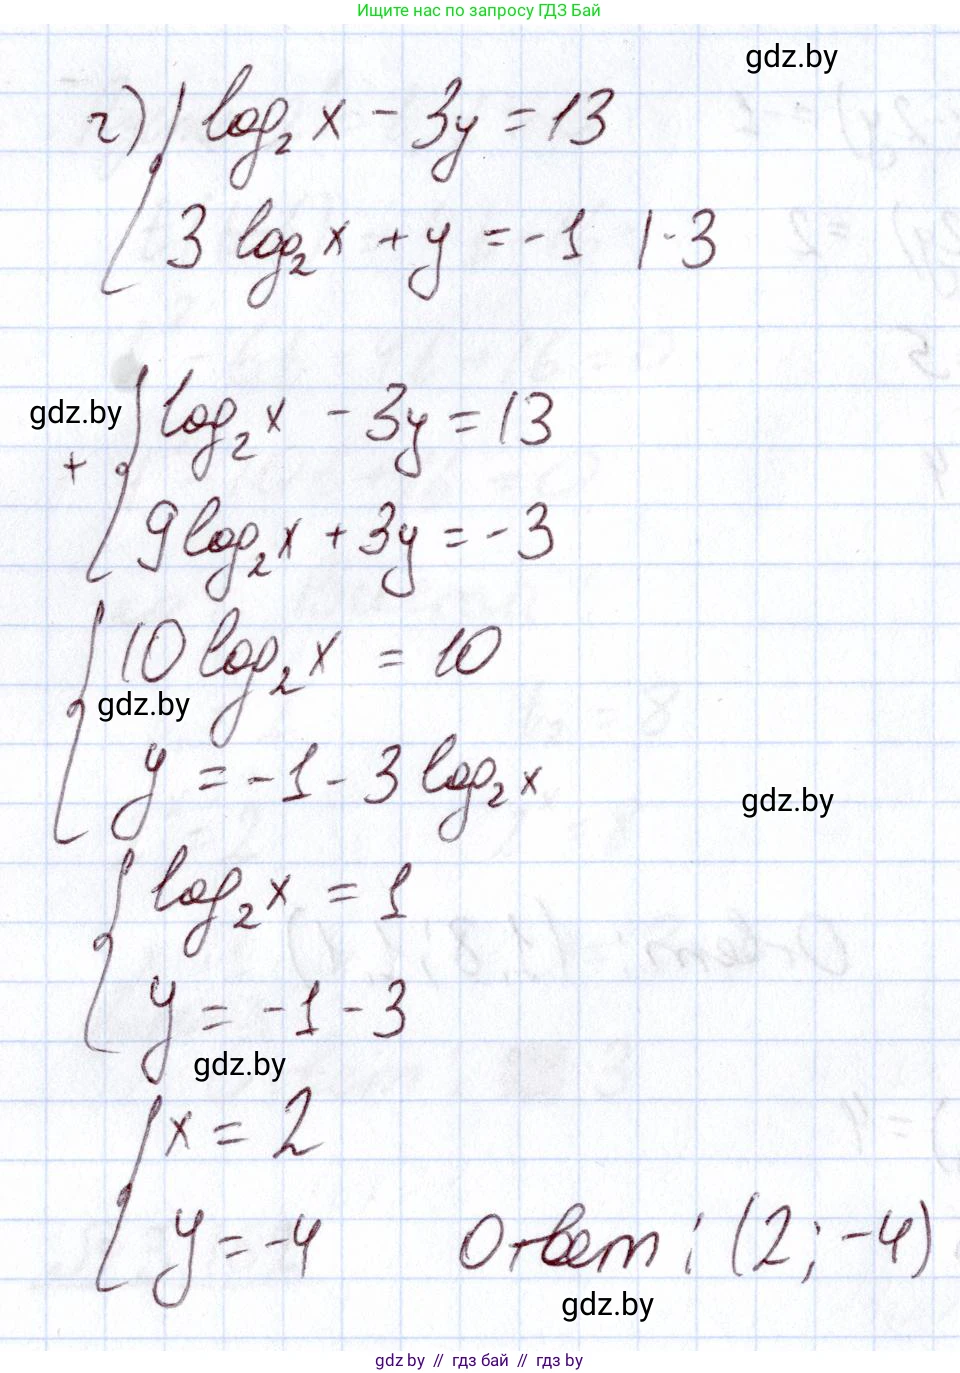 Ищите нас по запросу ГДЗ Бай
gdz.by
г) log₂ x - 3y = 13
3 log₂ x + y = -1 | · 3
gdz.by
log₂ x - 3y = 13
+
9 log₂ x + 3y = -3
10 log₂ x = 10
gdz.by
y = -1 - 3 log₂ x
gdz.by
log₂ x = 1
y = -1 - 3
gdz.by
x = 2
y = -4 Ответ: (2; -4)
gdz.by
gdz.by // гдз бай // гдз by